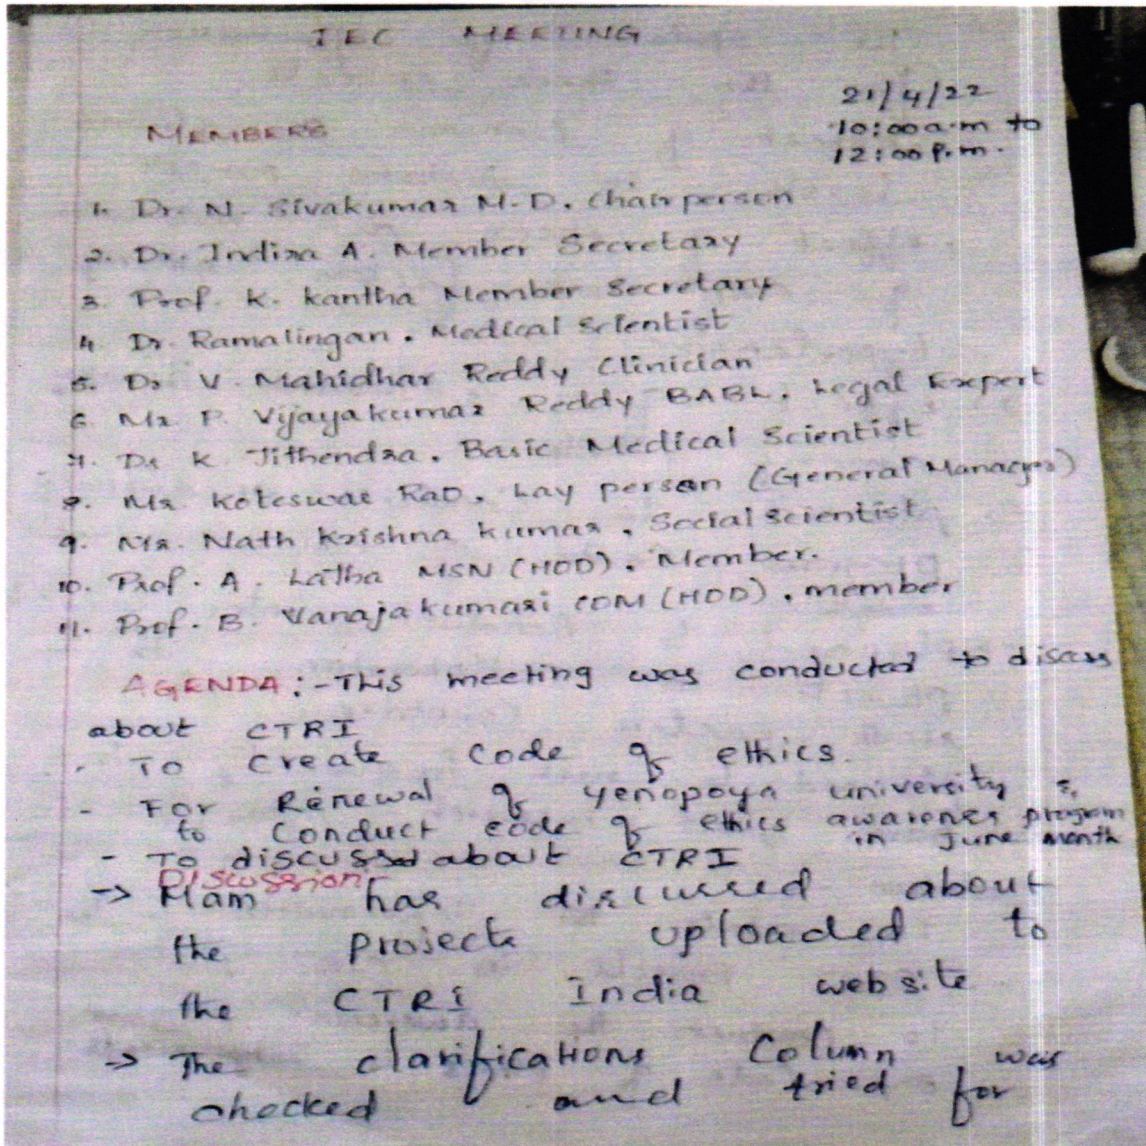 IEC MEETING
21/4/22
MEMBERS
10:00 a.m to
12:00 P.m.
1. Dr. N. Sivakumar M.D. Chairperson
2. Dr. Indira A. Member Secretary
3. Prof. K. Kantha Member Secretary
4. Dr. Ramalingan. Medical Scientist
5. Dr V. Mahidhar Reddy Clinician
6. Mr. P. Vijayakumar Reddy BABL. Legal Expert
7. Dr K. Jithendra. Basic Medical Scientist
8. Mr. Koteswar Rao. Lay person (General Manager)
9. Mr. Nath Krishna Kumar. Social Scientist
10. Prof. A. Latha MSN (HOD). Member.
11. Prof. B. Vanajakumari COM (HOD). member
AGENDA :- This meeting was conducted to discuss
about CTRI
- To Create Code of ethics.
- For Renewal of Yenopoya university &
to Conduct code of ethics awarenes program
in June month
- To discussed about CTRI
Discussion:-
→ Mam has discussed about
the projects uploaded to
the CTRI India website
→ The clarifications Column was
checked and tried for